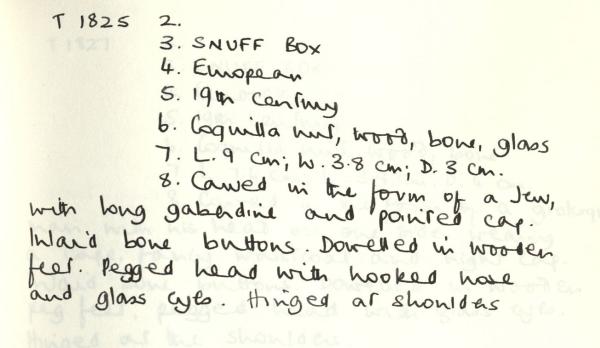 T 1825 2.
3. SNUFF BOX
4. European
5. 19th century
6. Coquilla nut, wood, bone, glass
7. L. 9 cm; W. 3.8 cm; D. 3 cm.
8. Carved in the form of a Jew,
with long gaberdine and pointed cap.
Inlaid bone buttons. Dowelled in wooden
feet. Pegged head with hooked nose
and glass eyes. Hinged at shoulders